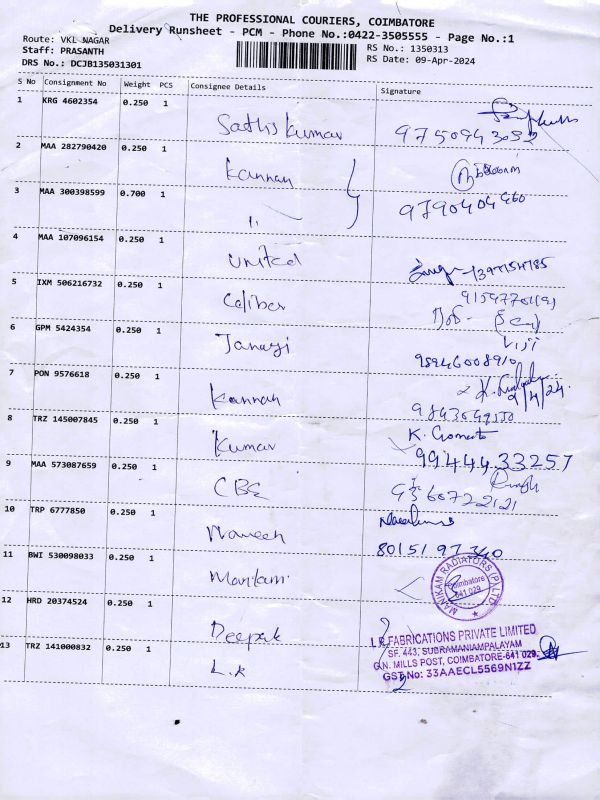 THE PROFESSIONAL COURIERS, COIMBATORE
Delivery Runsheet - PCM - Phone No.:0422-3505555 - Page No.:1
Route: VKL NAGAR
Staff: PRASANTH
DRS No.: DCJB135031301
RS No.: 1350313
RS Date: 09-Apr-2024
S No Consignment No Weight PCS Consignee Details Signature
1 KRG 4602354 0.250 1 Sathis kumar 9750943052
2 MAA 282790420 0.250 1 Kannan
3 MAA 300398599 0.700 1 " 9790404460
4 MAA 107096154 0.250 1 United
5 IXM 506216732 0.250 1 Caliber
6 GPM 5424354 0.250 1 Janagi Viji
98946008910
7 PON 9576618 0.250 1 Kannan 9/4/24.
8 TRZ 145007845 0.250 1 Kumar
9944433257
9 MAA 573087659 0.250 1 CBE
9360722121
10 TRP 6777850 0.250 1 Naveen
8015197340
11 BWI 530098033 0.250 1 Manikam
MANIKAM RADIATORS (P) LTD
Coimbatore
641 029.
12 HRD 20374524 0.250 1 Deepak
13 TRZ 141000832 0.250 1 L.K
FABRICATIONS PRIVATE LIMITED
SF. 443, SUBRAMANIAMPALAYAM
G.N. MILLS POST, COIMBATORE-641 029.
GST No: 33AAECL5569N1ZZ